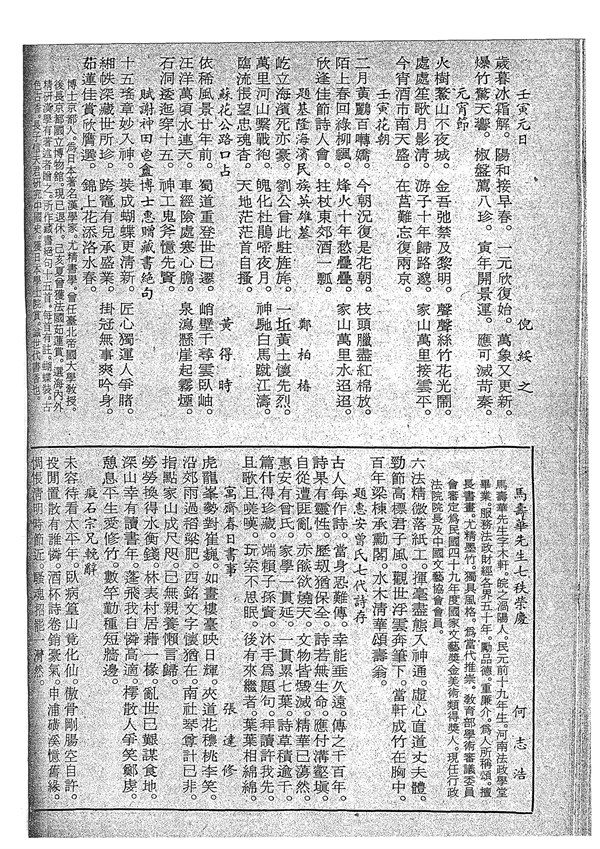 壬寅元日　倪綏之
歲暮冰霜解。陽和接早春。一元欣復始。萬象又更新。
爆竹驚天響。椒盤薦八珍。寅年開景運。應可滅苛秦。
元宵節
火樹鰲山不夜城。金吾弛禁及黎明。聲聲絲竹花光鬧。
處處笙歌月影清。游子十年歸路邈。家山萬里接雲平。
今宵酒市南天盛。在莒難忘復兩京。
壬寅花朝
二月黃鸝百囀嬌。今朝況復是花朝。枝頭臘盡紅棉放。
陌上春回綠柳飄。烽火十年愁疊疊。家山萬里水迢迢。
欣逢佳節詩人會。拄杖東郊酒一瓢。
題基隆海濱民族英雄墓　鄭柏椿
屹立海濱死亦豪。劉公曾此駐旌旄。一坵黃土懷先烈。
萬里河山繫戰袍。魄化杜鵑啼夜月。神馳白馬蹴江濤。
臨流悵望忠魂杳。天地茫茫首自搔。
蘇花公路口占　黃得時
依稀風景廿年前。蜀道重登世已遷。峭壁千尋雲臥岫。
汪洋萬頃水連天。車經險處寒心膽。泉瀉懸崖起霧煙。
石洞逶迤穿十五。神工鬼斧憶先賢。
賦謝神田㐂盦博士惠贈藏書絕句
十五瑤章妙入神。裝成蝴蝶更清新。匠心獨運人爭賭。
緗帙深藏世所珍。跨竈有兒承盛業。掛冠無事爽吟身。
茹蓮佳賞欣膺選。錦上花添洛水春。
博士京都人。為日本著名漢學家。尤精書學。曾任臺北帝國大學教授。
後長京都國立博物館。現已退休。己亥夏曾獲法國茹蓮賞。
馬壽華先生七秩榮慶　何志浩
馬壽華先生字木軒。皖之渦陽人。民元前十九年生。河南法政學堂
畢業。服務法政財經各界五十年。勵品德。重廉介。為人所稱頌。擅
長書畫。尤精墨竹。獨具風格。為當代推崇。敎育部學術審議委員
會審定為民國四十九年度國家文藝獎金美術類得獎人。現任行政
法院院長及中國文藝協會會員。
六法精微落紙工。揮毫盡態入神通。虛心直道丈夫體。
勁節高標君子風。觀世浮雲奔筆下。當軒成竹在胸中。
百年梁棟承勳閣。水木清華頌壽翁。
題惠安曾氏七代詩存
古人每作詩。當身恐難傳。幸能垂久遠。傳之千百年。
詩果有靈性。歷刼猶保全。詩若無生命。應付溝壑塡。
自從遭匪亂。赤燄欲燒天。文物皆毀滅。精華已蕩然。
惠安有曾氏。家學一貫延。一貫累七葉。詩草積逾千。
篇什得珍藏。端賴子孫賢。沐手為題句。拜讀許我先。
且歌且唉嘆。玩索不思眠。後有來繼者。葉葉相綿綿。
寓齋春日書事　張達修
虎龍峯勢對崔巍。如畫樓臺映日輝。夾道花穠桃李笑。
沿郊雨過稻粱肥。西銘文字懷猶在。南社琴尊計已非。
指點家山成咫尺。已無親養懶言歸。
勞勞換得水衡錢。林表村居藉一椽。亂世已艱謀食地。
深山幸有讀書年。蓬飛我自憐高適。樗散人爭笑鄭虔。
憩息平生愛修竹。數竿勤種短牆邊。
癡石宗兄輓辭
未容待看太平年。臥病篔山竟化仙。傲骨剛腸空自許。
投閒置散有誰憐。酒杯詩卷銷豪氣。申浦磺溪憶舊緣。
惆悵清明時節近。騷魂招罷一濟然。